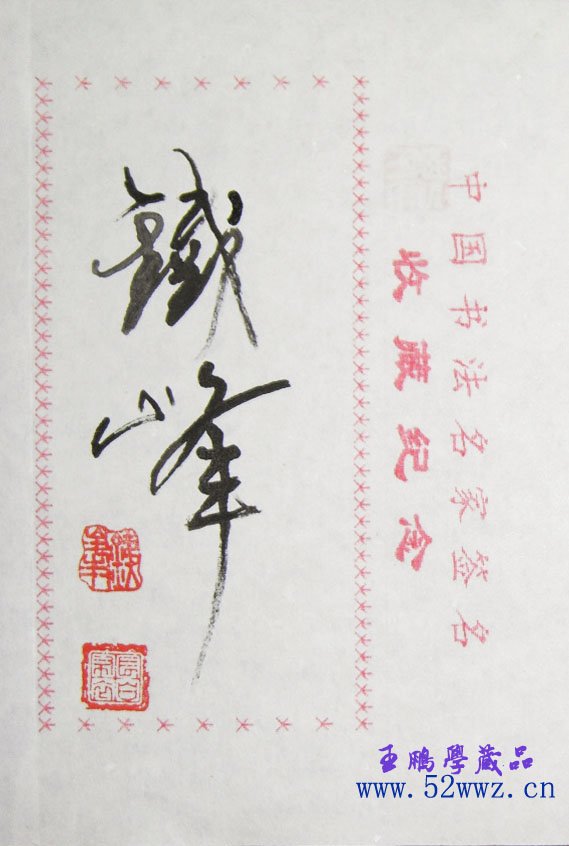 中国书法名家签名
收藏纪念
鐵峰
王鹏學藏品
www.52wwz.cn